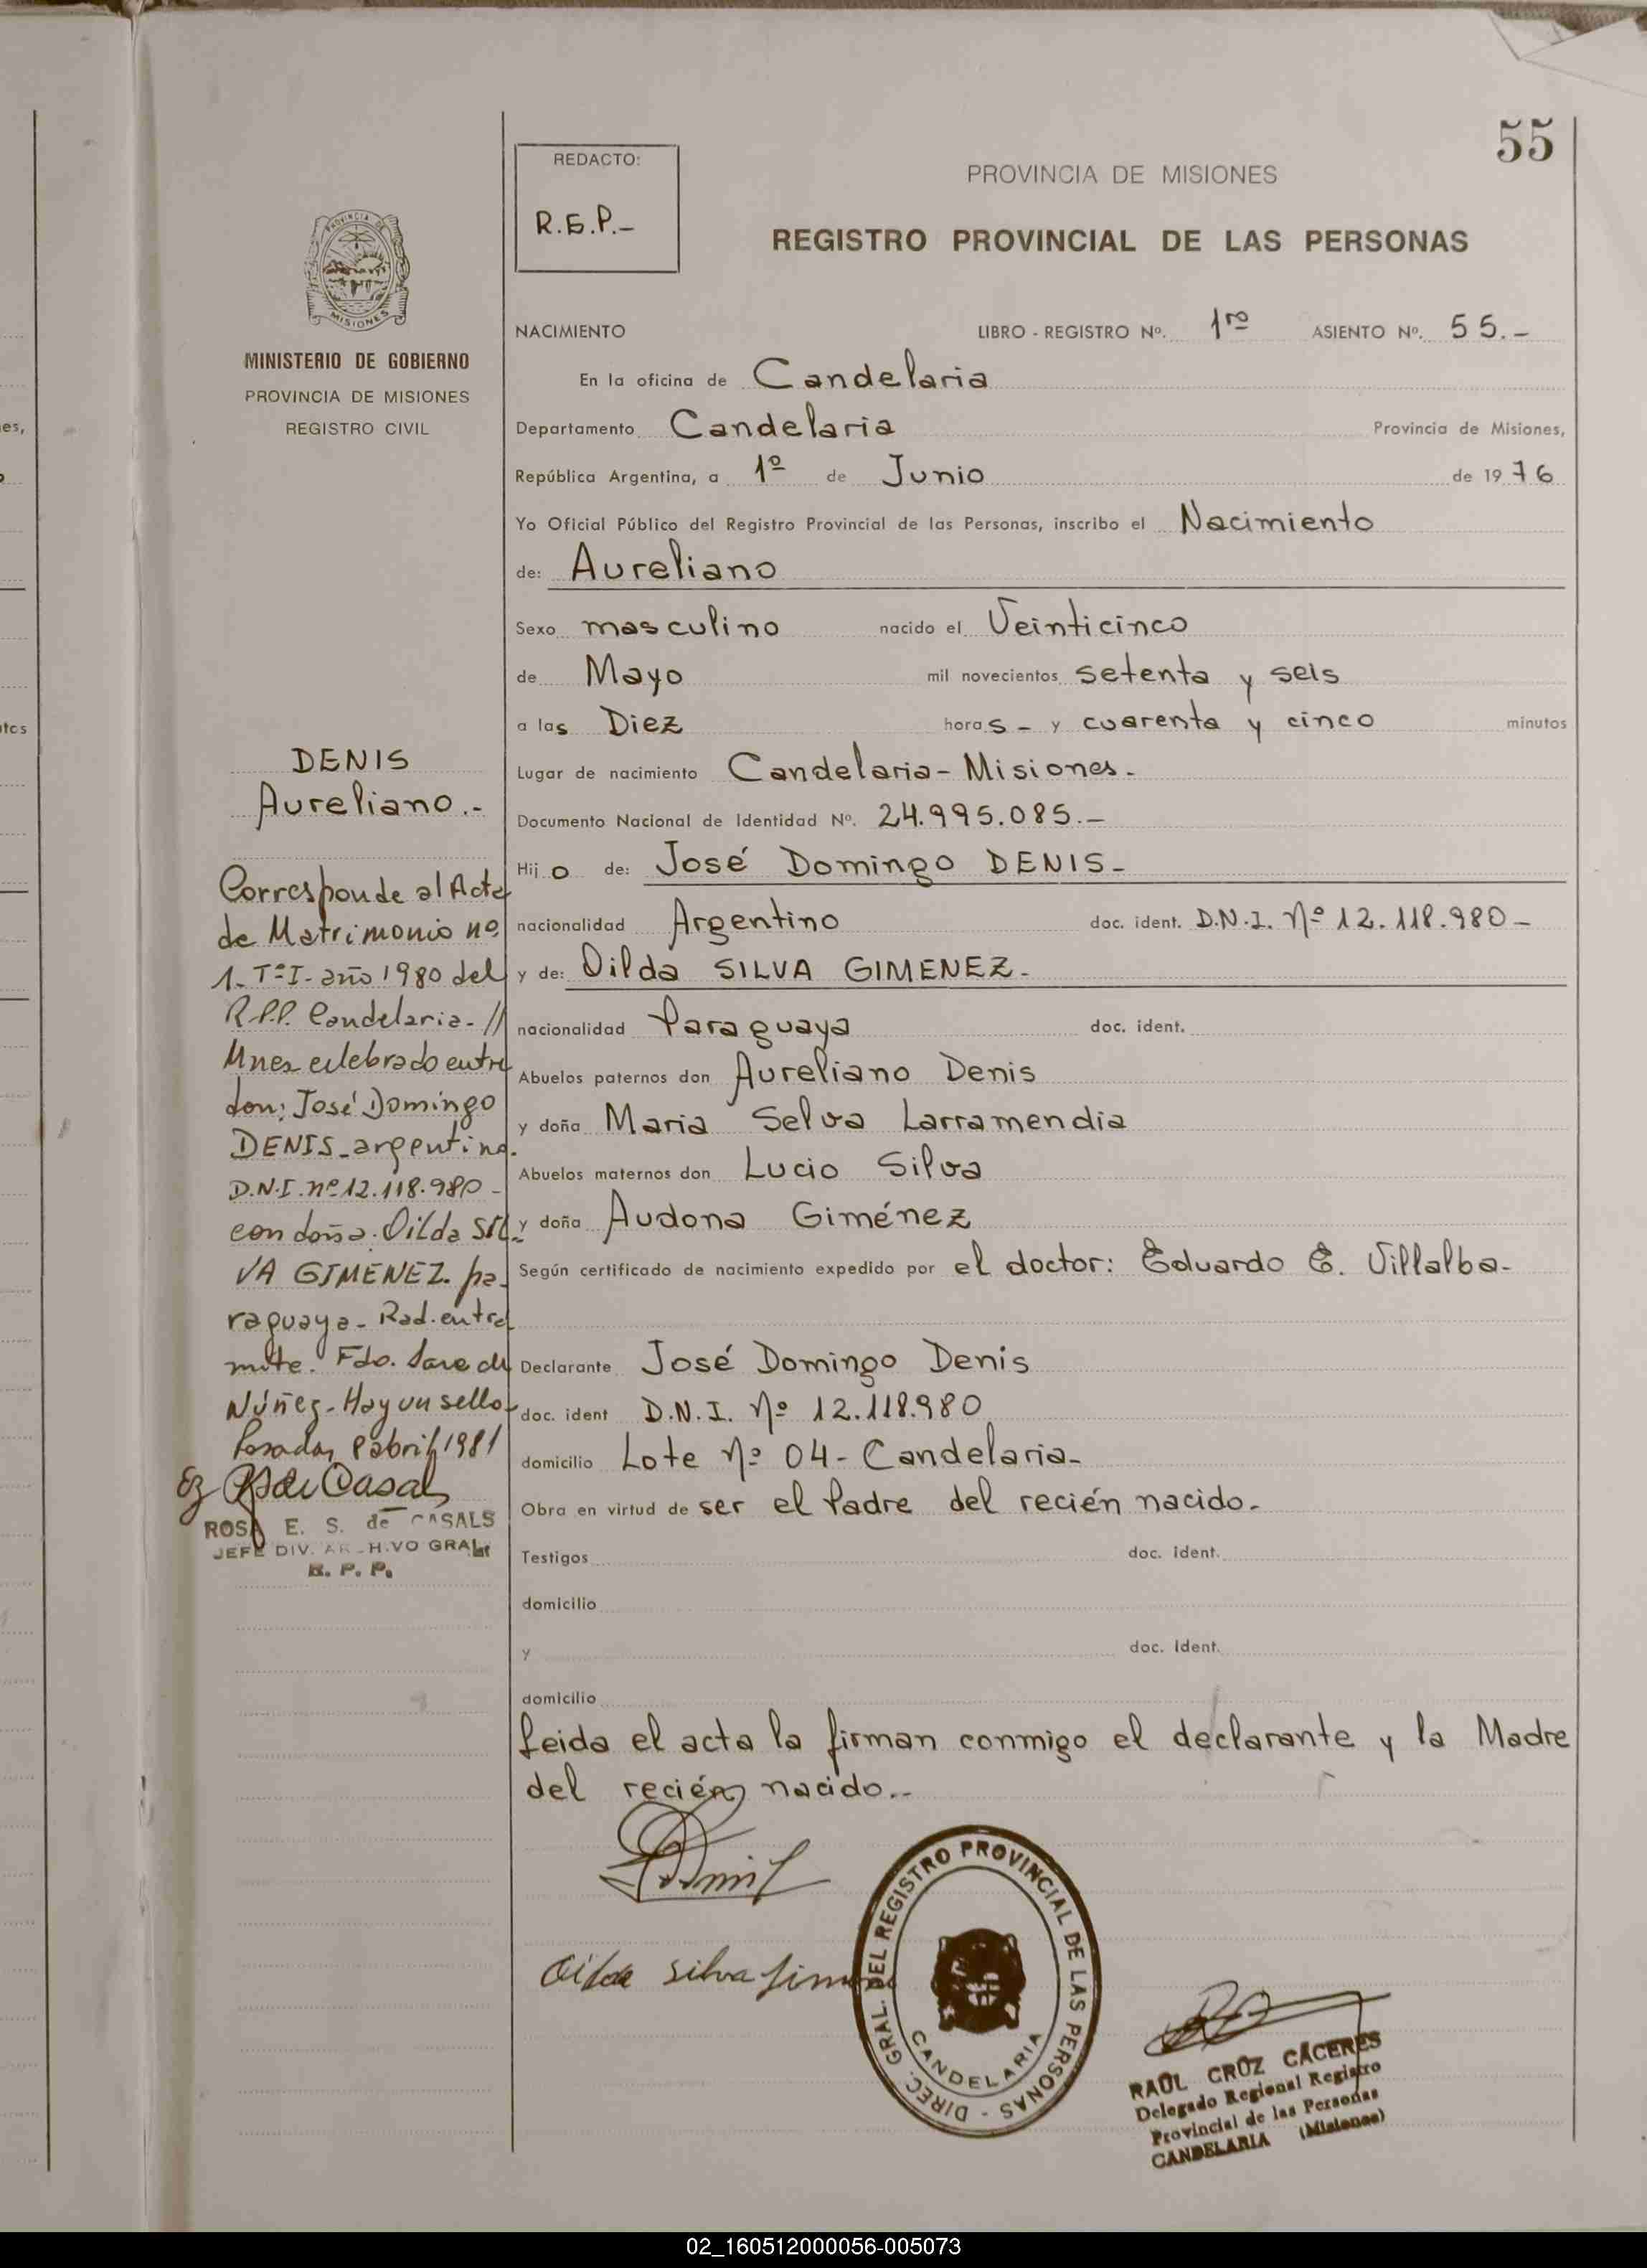 55
REDACTO:
R.E.P.-
PROVINCIA DE MISIONES
REGISTRO PROVINCIAL DE LAS PERSONAS
PROVINCIA DE
MISIONES
MINISTERIO DE GOBIERNO
PROVINCIA DE MISIONES
REGISTRO CIVIL
NACIMIENTO LIBRO - REGISTRO Nº. 1ro ASIENTO Nº. 55.-
En la oficina de Candelaria
Departamento Candelaria Provincia de Misiones,
República Argentina, a 1º de Junio de 1976
Yo Oficial Público del Registro Provincial de las Personas, inscribo el Nacimiento
de: Aureliano
Sexo masculino nacido el Veinticinco
de Mayo mil novecientos setenta y seis
a las Diez horas - y cuarenta y cinco minutos
Lugar de nacimiento Candelaria - Misiones.
Documento Nacional de Identidad Nº. 24.995.085.-
Hijo de: José Domingo DENIS-
nacionalidad Argentino doc. ident. D.N.I. Nº 12.118.980-
y de: Oilda SILVA GIMENEZ.
nacionalidad Paraguaya doc. ident.
Abuelos paternos don Aureliano Denis
y doña Maria Selva Larramendia
Abuelos maternos don Lucio Silva
y doña Audona Giménez
Según certificado de nacimiento expedido por el doctor: Eduardo E. Villalba-
Declarante José Domingo Denis
doc. ident D.N.I. Nº 12.118.980
domicilio Lote Nº 04- Candelaria-
Obra en virtud de ser el Padre del recién nacido.
Testigos doc. ident.
domicilio
y doc. ident.
domicilio
Leida el acta la firman conmigo el declarante y la Madre
del recién nacido..
DENIS
Aureliano.-
Corresponde al Acta
de Matrimonio nº
1- Tº I- año 1980 del
R.P.P. Candelaria- //
Mnes celebrado entre
don: José Domingo
DENIS-argentino.
D.N.I. nº 12.118.980-
con doña: Oilda SIL-
VA GIMENEZ. pa-
raguaya- Rad. entra
mite. Fdo. Sara de
Núñez- Hay un sello-
Posadas, 8 abril 1981
ROSA E. S. de CASALS
JEFE DIV. ARCHIVO GRAL.
R. P. P.
Oilda Silva Jimenez
DIREC. GRAL. DEL REGISTRO PROVINCIAL DE LAS PERSONAS -
CANDELARIA
RAUL CRUZ CACERES
Delegado Regional Registro
Provincial de las Personas
CANDELARIA (Misiones)
02_160512000056-005073